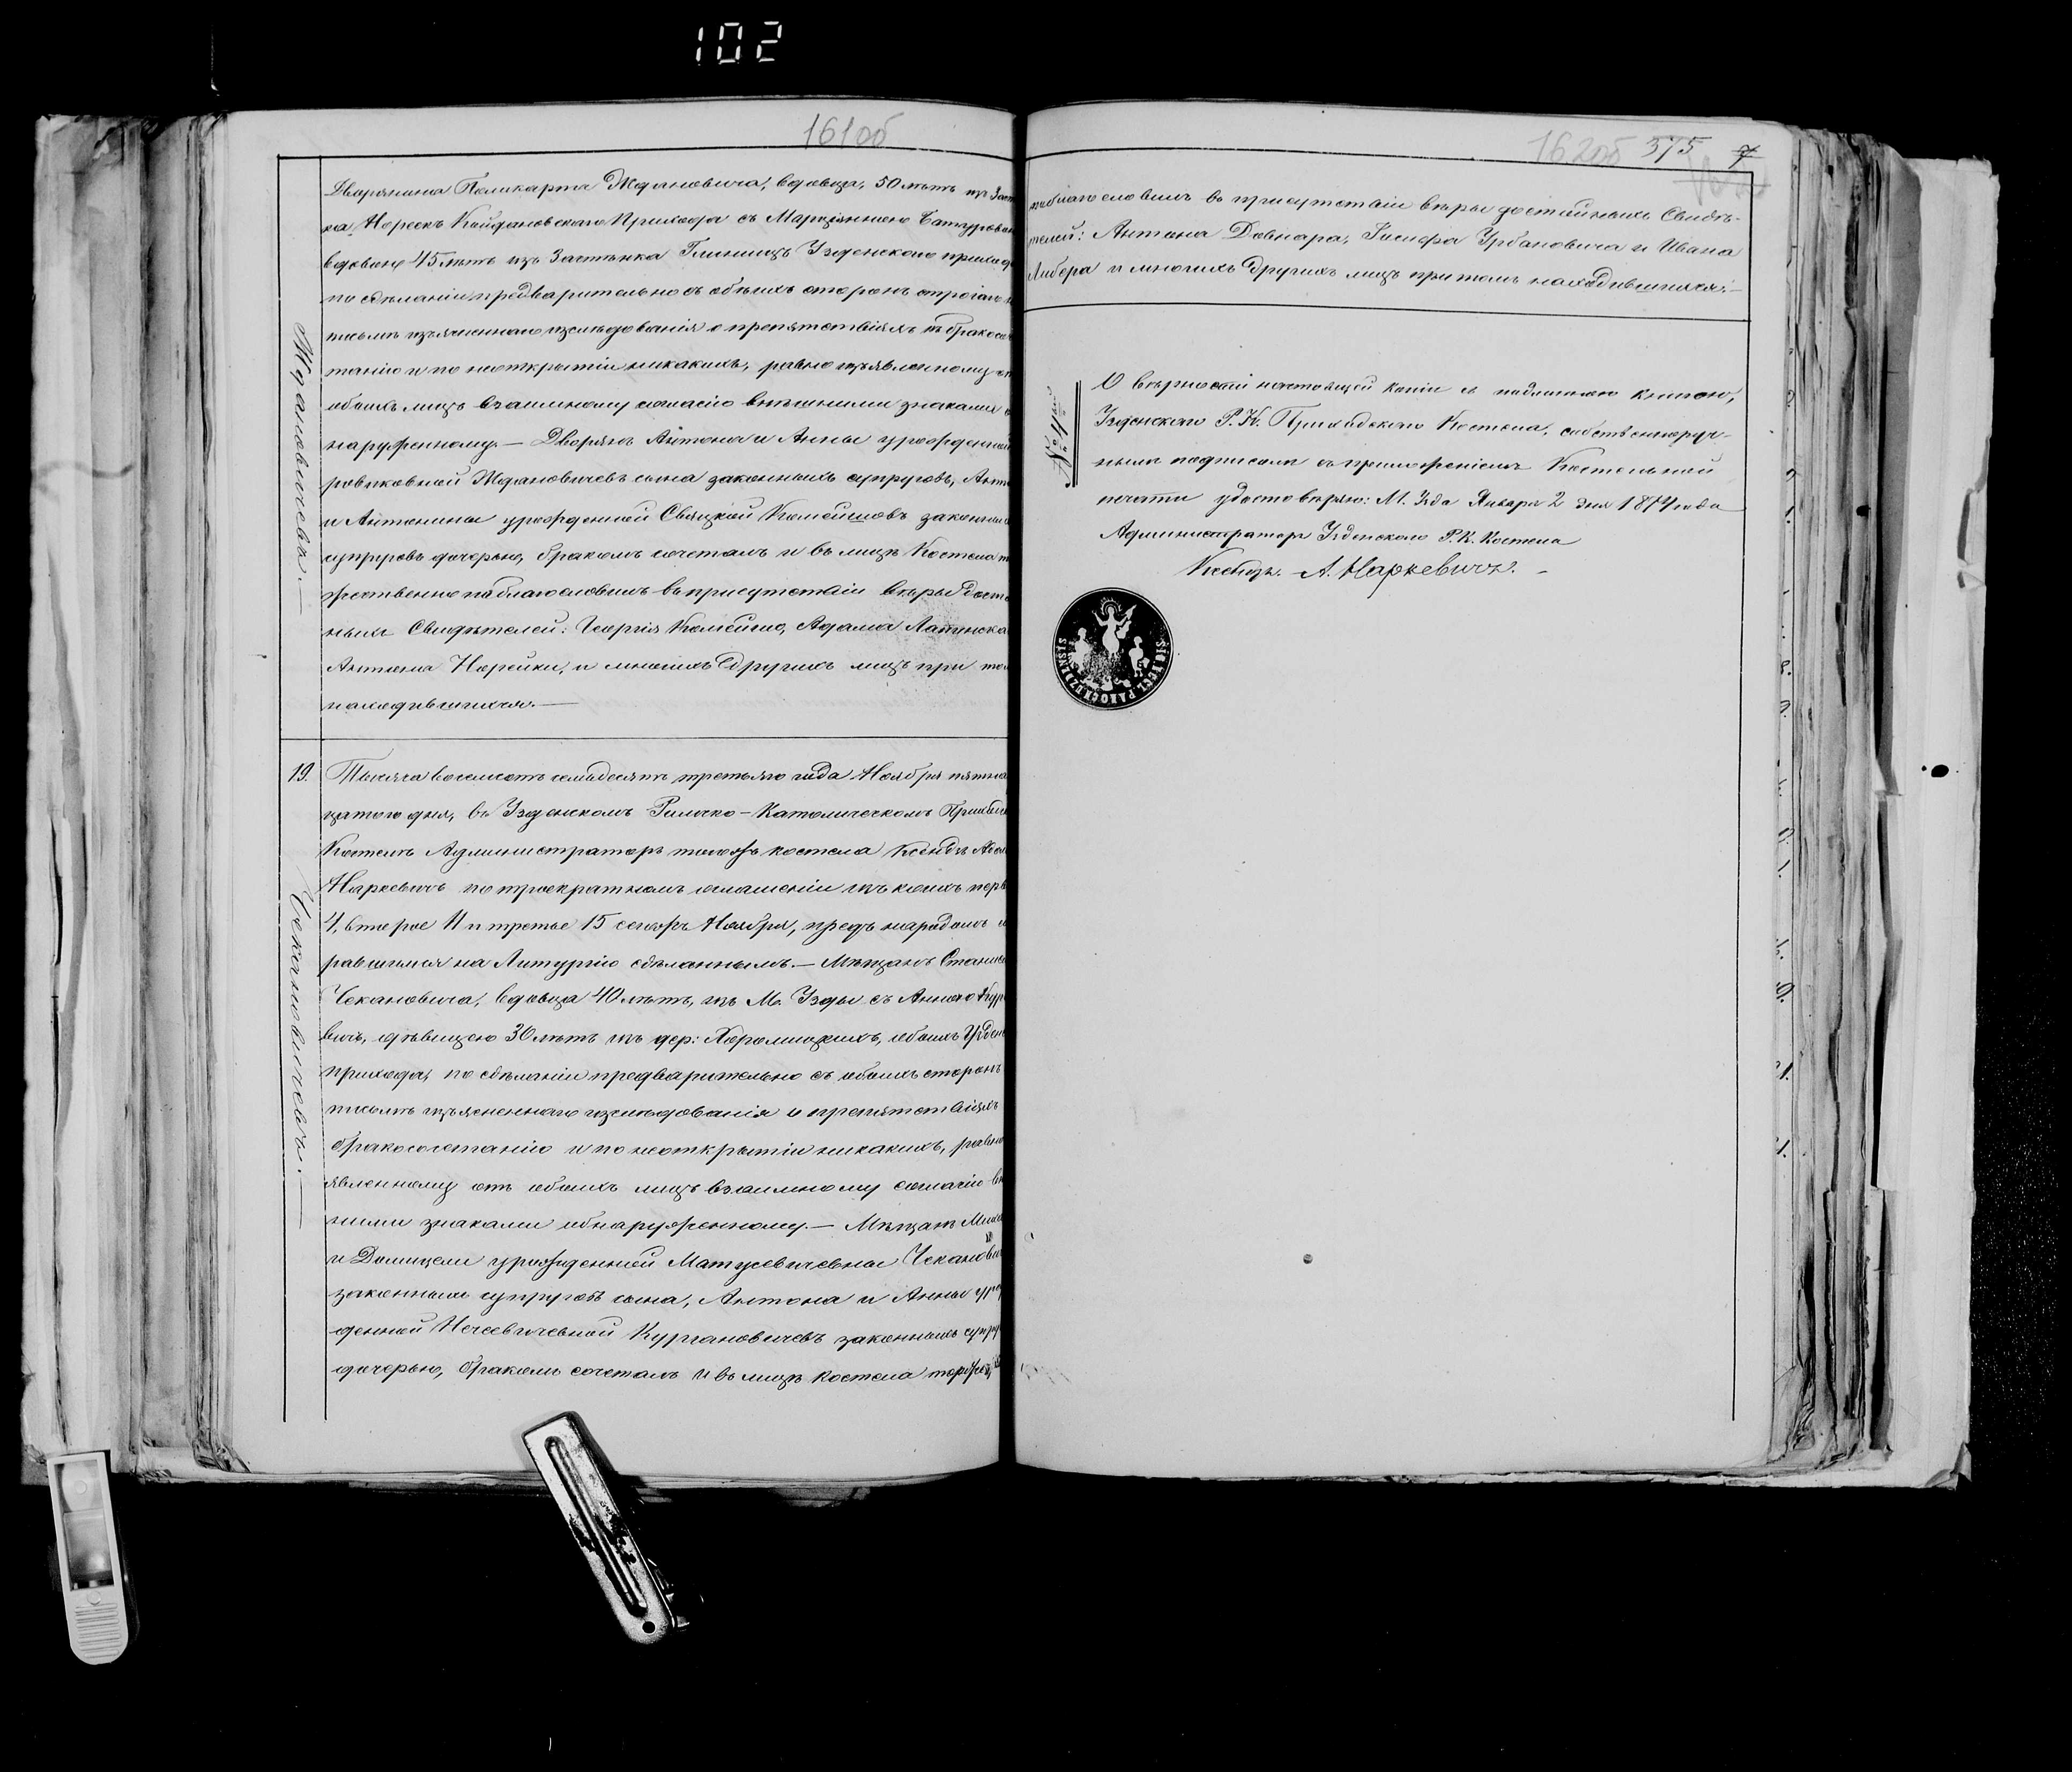 102
161об
Дворянина Поликарпа Ждановича, вдовца, 50 лѣтъ изъ Заст
ка Нореекъ Койдановскаго Прихода съ Марціянною Батурови
вдовою 45 лѣтъ изъ Застѣнка Глинищъ Узденскаго прихода
по сдѣланіи предварительно съ обѣихъ сторонъ строгаго и
письмѣ изъясненнаго изслѣдованія о препятствіяхъ къ бракосоче
танію и по неоткрытіи никакихъ, равно изъявленному от
обоихъ лицъ взаимному согласію внѣшними знаками об
наруженному. — Дворянъ Антона и Анны урожденной
ровиковной Ждановичевъ сына законныхъ супруговъ, Анто
и Антонины урожденной Свяцкой Комейшовъ законных
супруговъ дочерью, бракомъ сочеталъ и въ лицѣ Костела т
жественно поблагословилъ въ присутствіи вѣры достой
ныхъ Свидѣтелей: Георгія Комейшо, Адама Лапинска
Антона Норейки, и многихъ другихъ лицъ при том
находившихся. —
Ждановичевъ. —
19.
Тысяча восемсотъ семьдесятъ третьяго года Ноября пятна
цатого дня, въ Узденскомъ Римско-Католическомъ Приходс
Костелѣ Администраторъ тогожъ костела Ксендзъ Адам
Наркевичъ по троекратномъ оглашеніи изъ коихъ перв
4, второе 11 и третье 15 сегожъ Ноября, предъ народомъ со
равшимся на Литургію сдѣланнымъ. — Мѣщанъ Станисл
Чекановича, вдовца 40 лѣтъ, изъ М. Узды съ Анною Кур
вичъ, дѣвицею 30 лѣтъ изъ дер: Хоромицкихъ, обоихъ Узден
прихода, по сдѣланіи предварительно съ обоихъ сторонъ
письмѣ изъясненнаго изслѣдованія о препятствіяхъ
бракосочетанію и по неоткрытіи никакихъ, равно
явленному отъ обоихъ лицъ взаимному согласію вн
ними знаками обнаруженному. — Мѣщанъ Миха
и Домицели урожденной Матусевичевны Чеканови
законныхъ супруговъ сына, Антона и Анны уро
денной Нечевичевной Кургановичевъ законныхъ супру
дочерью, бракомъ сочеталъ и въ лицѣ костела торжес
Чекановичевъ. —
162об 375 7
поблагословилъ въ присутствіи вѣры достойныхъ Свидѣ-
телей: Антона Довнара, Іосифа Урбановича и Ивана
Либера и многихъ другихъ лицъ притомъ находившихся. —
№ 4
О вѣрности настоящей копіи съ подлинною книгою,
Узденскаго Р. К. Приходскаго Костела, собственноруч-
нымъ подписомъ съ приложеніемъ Костельной
печати удостовѣряю: М. Узда Января 2 дня 1874 года
Администраторъ Узденскаго Р. К. Костела
Ксендзъ. А. Наркевичъ. —